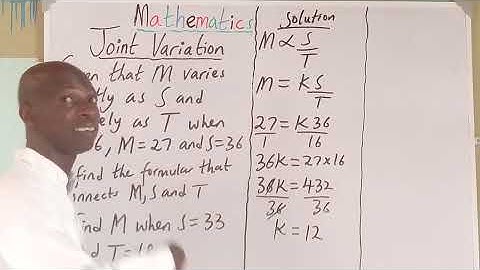 Mathematics
Joint Variation
that M varies
as S and
as T when
6, M = 27 and S = 36
find the formular that
M, S and T
find M when S = 33
T = 18
Solution
M ∝ S/T
M = KS/T
27/1 = K36/16
36K = 27 × 16
36K/36 = 432/36
K = 12